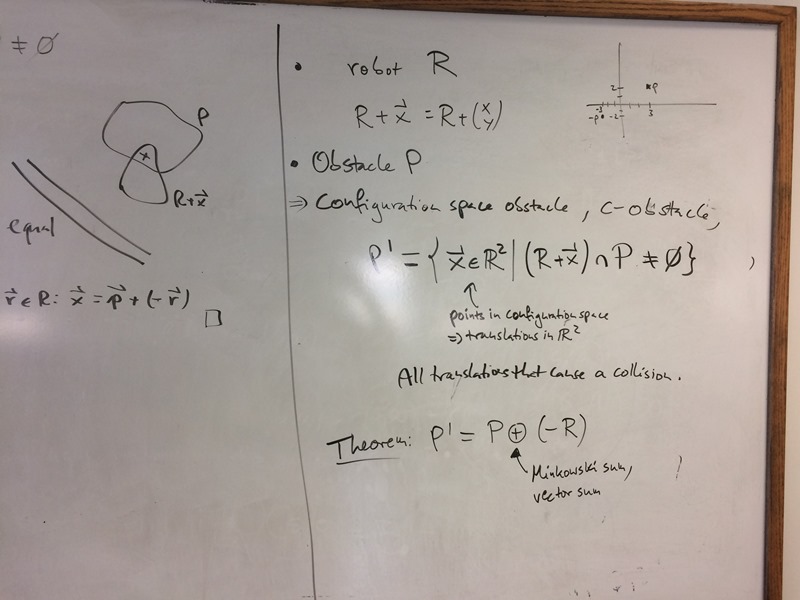 ≠ ∅
P
x
R+x⃗
equal
r⃗ ∈ R: x⃗ = p⃗ + (-r⃗) □
• robot R
R + x⃗ = R + (x y)
2 p
-3
-p -2 3
• Obstacle P
⇒ Configuration space obstacle, C-obstacle,
P' = { x⃗ ∈ ℝ² | (R+x⃗) ∩ P ≠ ∅ }
points in configuration space
⇒ translations in ℝ²
All translations that cause a collision.
Theorem: P' = P ⊕ (-R)
Minkowski sum,
vector sum